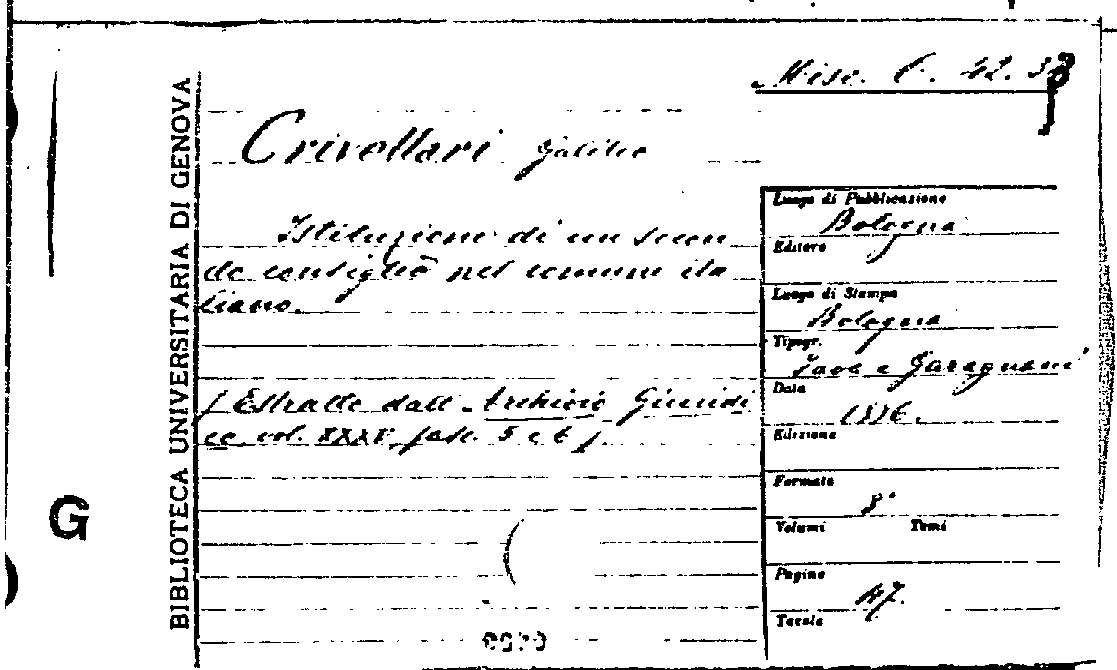 Misc. C. 42. 38
Crivellari Galileo
Istituzione di un secon
do consiglio nel comune ita
liano.
(Estratto dall'Archivio Giuridi
co vol. XXXV, fasc. 5 e 6).
BIBLIOTECA UNIVERSITARIA DI GENOVA
G
Luogo di Pubblicazione
Bologna
Editore
Luogo di Stampa
Bologna
Tipogr.
Fava e Garagnani
Data
1886.
Edizione
Formato
8°
Volumi Tomi
Pagine
47.
Tavole